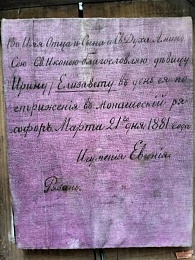 Во Имя Отца и Сына и Св. Духа Аминь
Сею Св. Иконою благословляю дѣвицу
Ирину / Елизавиту въ день ея по
стриженія въ Монашескій ря
софоръ Марта 21го дня 1881 года
Игуменія Евгенія.